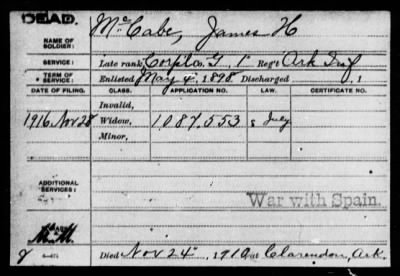 DEAD.
NAME OF SOLDIER: McCabe, James H
SERVICE: Late rank Corpl Co. G, 1" Reg't Ark Inf
TERM OF SERVICE: Enlisted May 4, 1898 Discharged , 1
DATE OF FILING. CLASS. APPLICATION NO. LAW. CERTIFICATE NO.
Invalid,
1916 Nov 28 Widow, 1087,553 s July
Minor,
ADDITIONAL SERVICES:
War with Spain.
Died Nov 24", 1910, at Clarendon, Ark.